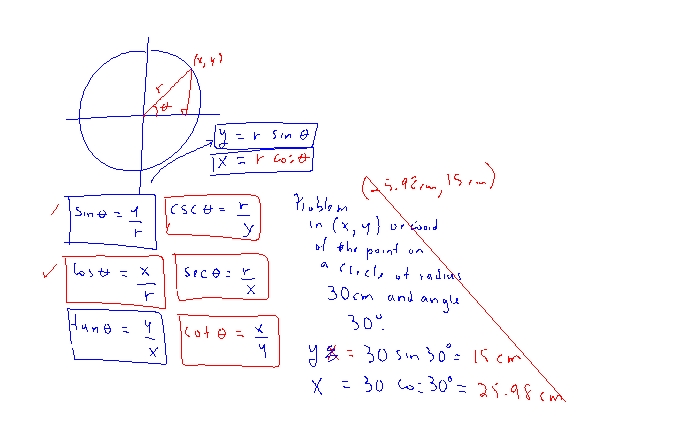 (x, y)
r
θ
y = r sin θ
x = r cos θ
sin θ = y/r
csc θ = r/y
cos θ = x/r
sec θ = r/x
tan θ = y/x
cot θ = x/y
(25.98 cm, 15 cm)
Problem
in (x, y)
of the point on
a circle of radius
30 cm and angle
30°.
y = 30 sin 30° = 15 cm
x = 30 cos 30° = 25.98 cm